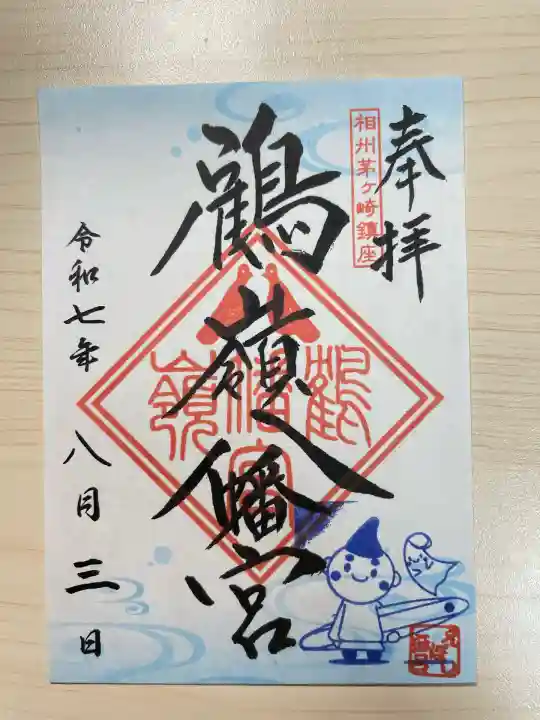 奉拝
相州茅ヶ崎鎮座
鶴嶺八幡宮
鶴嶺
八幡宮
令和七年八月三日